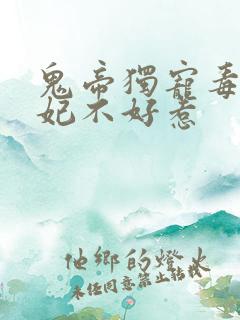 鬼帝獨寵毒
妃不好惹
他鄉的燈火
未經同意禁止轉載